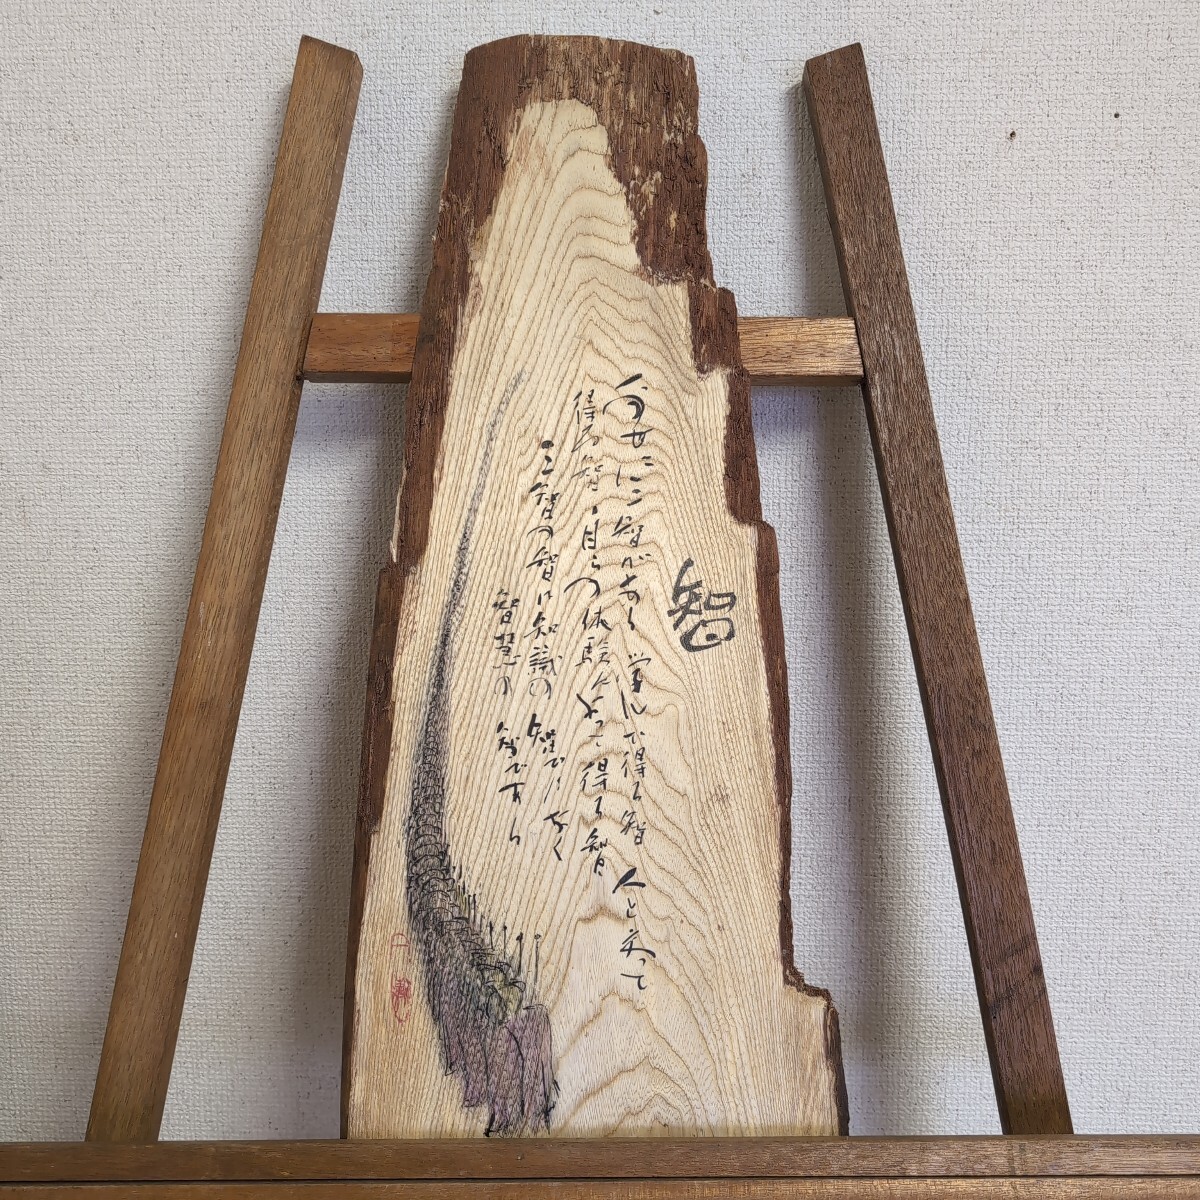 智
人の世に三智がある 学んで得る智 人と交って
得る智・自らの体験によって得る智
・三智の智は知識の智ではなく
智慧の智である